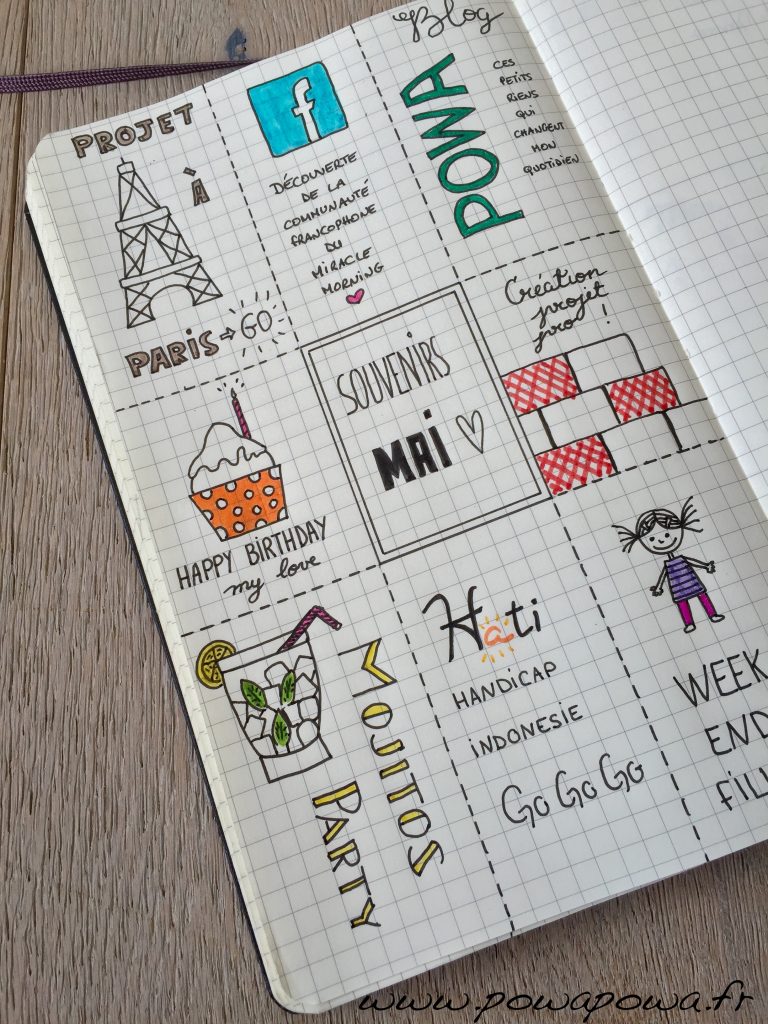 PROJET
À
PARIS → GO
f
DÉCOUVERTE
DE LA
COMMUNAUTÉ
FRANCOPHONE
DU
MIRACLE
MORNING
Blog
POWA
CES
PETITS
RIENS
QUI
CHANGENT
MON
QUOTIDIEN
HAPPY BIRTHDAY
my love
SOUVENIRS
MAI
Création
projet
pro !
MOJITOS
PARTY
Hati
HANDICAP
INDONESIE
GO GO GO
WEEK
END
www.powapowa.fr